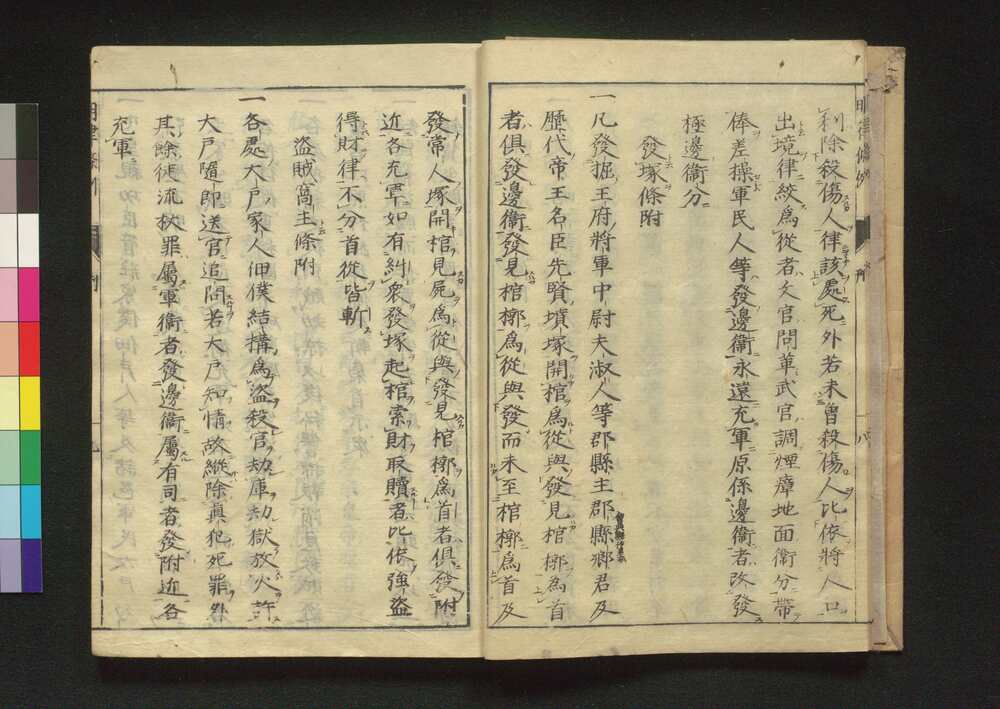 利除殺傷人律該處死外若未曾殺傷人比依將人口
出境律絞爲從者文官問革武官調煙瘴地面衞分帶
俸差操軍民人等發邊衞永遠充軍原係邊衞者改發
極邊衞分
發塚條附
一凡發掘王府將軍中尉夫淑人等郡縣主郡縣鄉君及
歷代帝王名臣先賢墳塚開棺爲從與發見棺槨爲首
者俱發邊衞發見棺槨爲從與發而未至棺槨爲首及
發常人塚開棺見屍爲從與發見棺槨爲首者俱發附
近各充軍如有糾衆發塚起棺索財取贖者比依強盜
得財律不分首從皆斬
盜賊窩主條附
一各處大戶家人佃僕結搆爲盜殺官劫庫劫獄放火許
大戶隨即送官追問若大戶知情故縱除眞犯死罪外
其餘徒流杖罪屬軍衞者發邊衞屬有司者發附近各
充軍